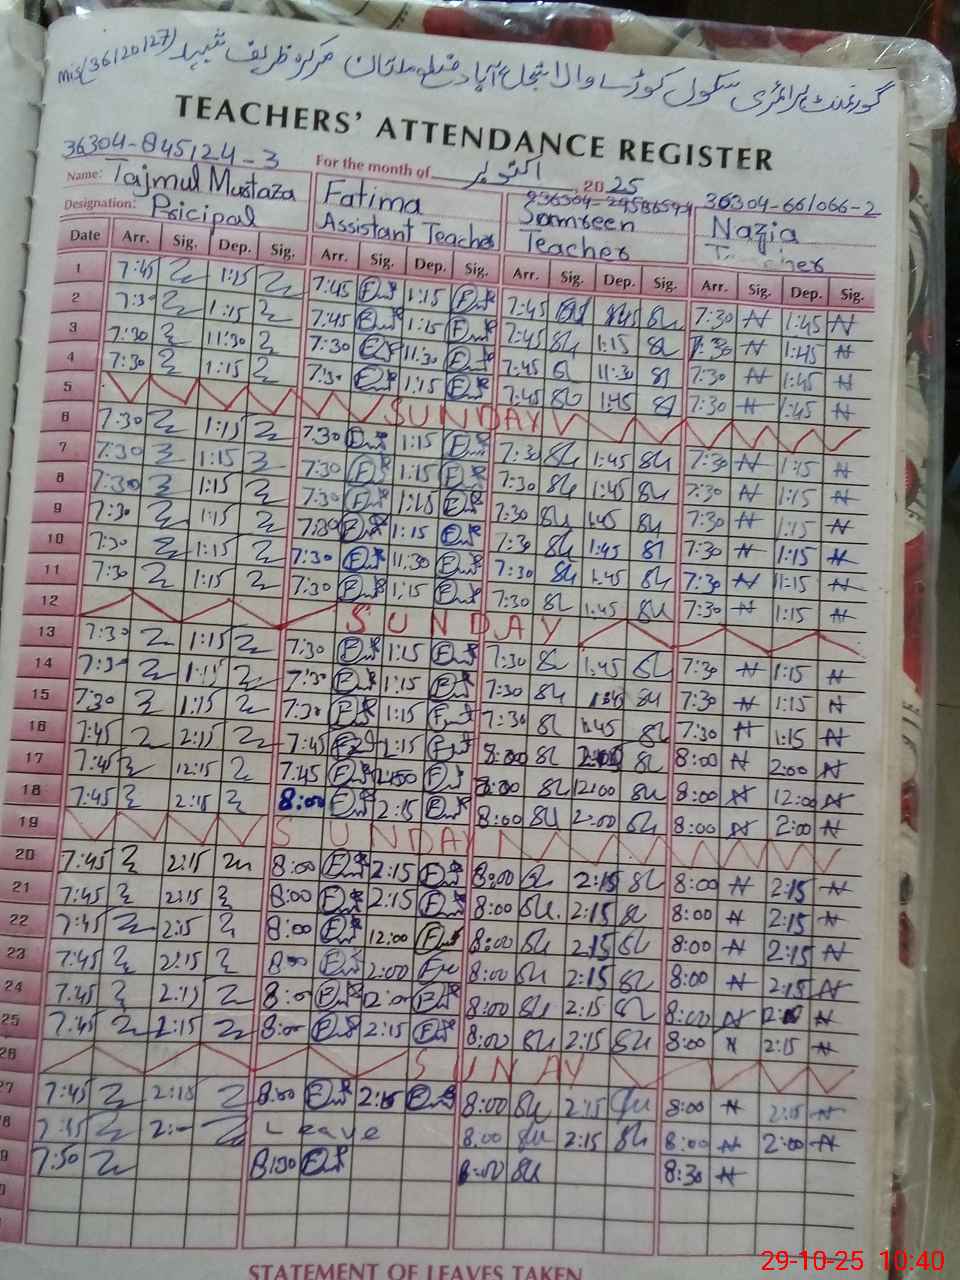 گورنمنٹ پرائمری سکول کوڑے والا شجاع آباد ضلع ملتان مرکز ظریف شہید (36120127)Mis
TEACHERS' ATTENDANCE REGISTER
36304-845124-3
For the month of اکتوبر, 2025
Name: Tajmul Mustaza Fatima Samreen Nazia
36304-661066-2
Designation: Pricipal Assistant Teacher Teacher
Date Arr. Sig. Dep. Sig. Arr. Sig. Dep. Sig. Arr. Sig. Dep. Sig. Arr. Sig. Dep. Sig.
1 7:45 1:15 7:45 1:15 7:45 7:30 1:45
2 7:30 1:15 7:45 1:15 7:45 1:15 7:30 1:45
3 7:30 11:30 7:30 11:30 7:45 11:30 7:30 1:45
4 7:30 1:15 7:30 1:15 7:45 1:45 7:30 1:45
5 SUNDAY
6 7:30 1:15 7:30 1:15 7:30 1:45 7:30 1:15
7 7:30 1:15 7:30 1:15 7:30 1:45 7:30 1:15
8 7:30 1:15 7:30 1:15 7:30 1:45 7:30 1:15
9 7:30 1:15 7:30 1:15 7:30 1:45 7:30 1:15
10 7:30 1:15 7:30 11:30 7:30 1:45 7:30 11:15
11 7:30 1:15 7:30 1:15 7:30 1:45 7:30 1:15
12 SUNDAY
13 7:30 1:15 7:30 1:15 7:30 1:45 7:30 1:15
14 7:30 1:15 7:30 1:15 7:30 1:45 7:30 1:15
15 7:30 1:15 7:30 1:15 7:30 1:45 7:30 1:15
16 7:45 2:15 7:45 2:15 8:00 8:00 2:00
17 7:45 12:15 7:45 12:00 8:00 12:00 8:00 12:00
18 7:45 2:15 8:00 2:15 8:00 2:00 8:00 2:00
19 SUNDAY
20 7:45 2:15 8:00 2:15 8:00 2:15 8:00 2:15
21 7:45 2:15 8:00 2:15 8:00 2:15 8:00 2:15
22 7:45 2:15 8:00 12:00 8:00 2:15 8:00 2:15
23 7:45 2:15 8:00 2:00 8:00 2:15 8:00 2:15
24 7:45 2:15 8:00 12:00 8:00 2:15 8:00
25 7:45 2:15 8:00 2:15 8:00 2:15 8:00 2:15
26 SUNAY
27 7:45 2:15 8:00 2:15 8:00 2:15 8:00 2:15
8 7:45 Leave 8:00 2:15 8:00 2:00
9 7:50 8:30 8:00 8:30
STATEMENT OF LEAVES TAKEN
29-10-25 10:40